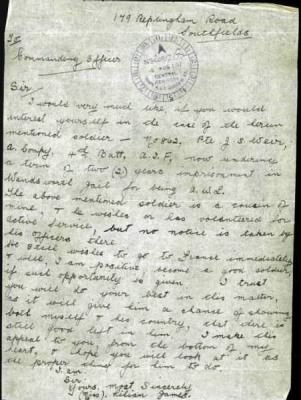 179 Replingham Road
Southfields
To
Commanding Officer
Sir
I would very much like, if you would
interest yourself in the case of the herein
mentioned soldier - No 862, Pte J. S. Weir,
A Compy, 4th Batt, A.I.F, now undergoing
a term of two (2) years imprisonment in
Wandsworth Gaol for being A.W.L.
The above mentioned soldier is a cousin of
mine, & he wishes or has volunteered for
active Service, but no notice is taken by
his Officers there
he still wishes to go to France immediately
& will, I am positive become a good soldier,
if such opportunity is given. I trust
you will do your best in this matter,
as it will give him a chance of showing
both myself & his country, that there is
still good left in him. I make this
appeal to you, from the bottom of my
heart, & hope you will look at it as
the proper thing for him to do.
I am
Sir,
Yours most Sincerely
(Miss) Lilian James.